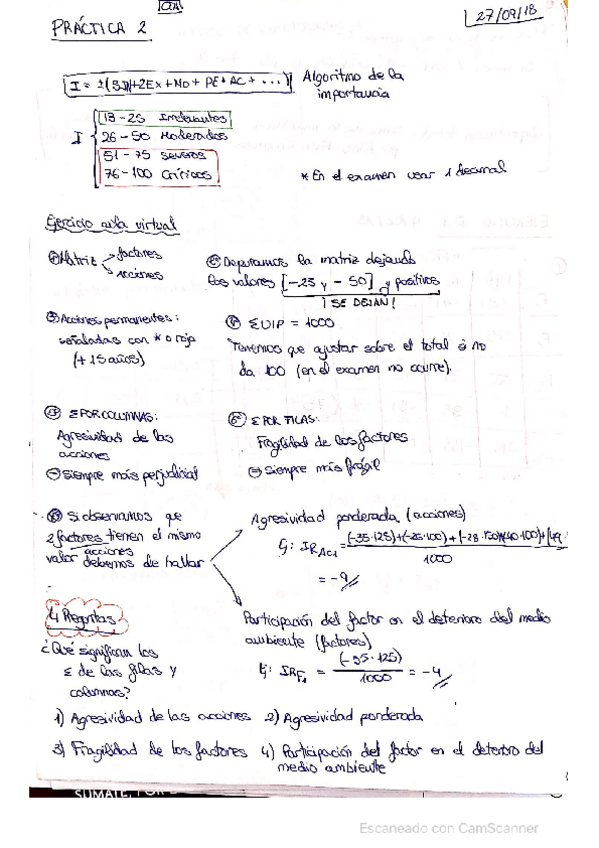 CIA
27/09/18
PRÁCTICA 2
I = ±(3IN+2EX+MO+PE+AC+...) Algoritmo de la
importancia
I
13-25 Irrelevantes
26-50 Moderados
51-75 Severos
76-100 Críticos
* En el examen usar 1 decimal
Ejercicio aula virtual
Matriz
factores
acciones
Depuramos la matriz dejando
los valores [-25 y -50] y positivos
¡SE DEJAN!
Acciones permanentes:
señaladas con * o rojo
(+15 años)
Σ UIP = 1000
Tenemos que ajustar sobre el total si no
da 100 (en el examen no ocurre).
Σ POR COLUMNAS:
Agresividad de las
acciones
⊖ Siempre más perjudicial
Σ POR FILAS:
Fragilidad de los factores
⊖ Siempre más frágil
Si observamos que
2 factores tienen el mismo
acciones
valor debemos de hallar
Agresividad ponderada (acciones)
Ej: IR
= -9
1000
Participación del factor en el deterioro del medio
ambiente (factores)
Ej: IRF1 = (-35·125) / 1000 = -4
4 Preguntas
¿Qué significan los
Σ de las filas y
columnas?
1) Agresividad de las acciones 2) Agresividad ponderada
3) Fragilidad de los factores 4) Participación del factor en el deterioro del
medio ambiente
Escaneado con CamScanner